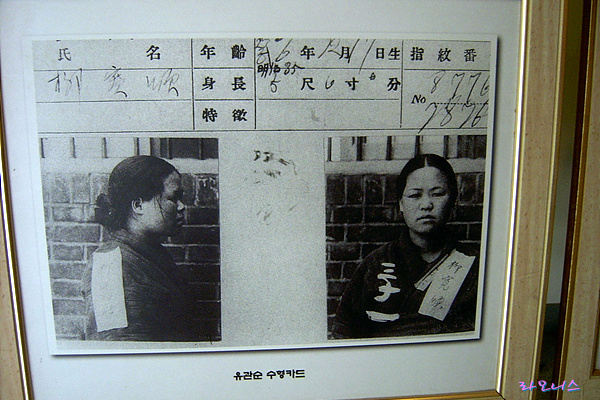 氏 名 年 齡 年 12月17日生 指紋番
柳 寬 順 身 長 5 尺 6 寸 分 No 8776
7876
特 徵
柳寬順
유관순 수형카드
라오니스